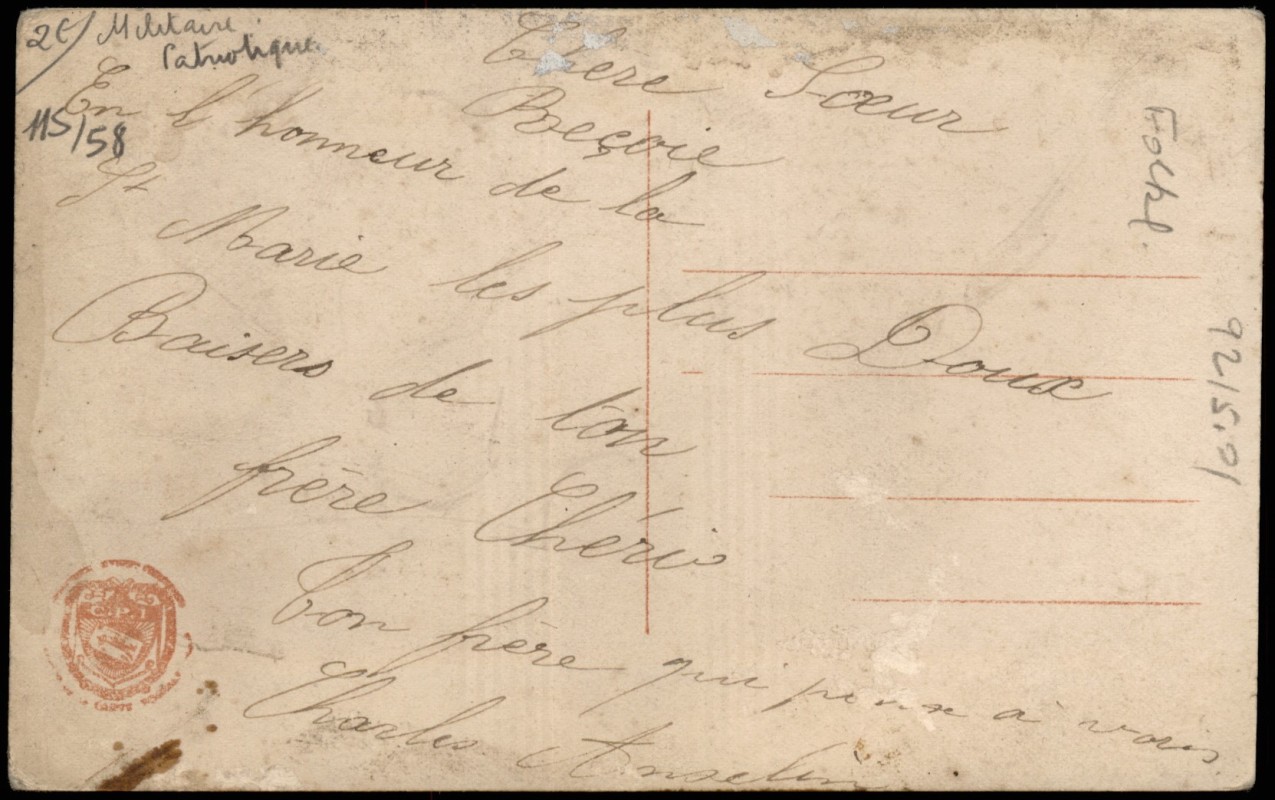 2€/ Militaire
Patriotique
115/58
Chère Sœur
Reçoie
En l'honneur de la
St
Marie les plus Doux
Baisers de ton
frère Chéri
Ton frère qui panse à vous
Charles Anselin
Foch